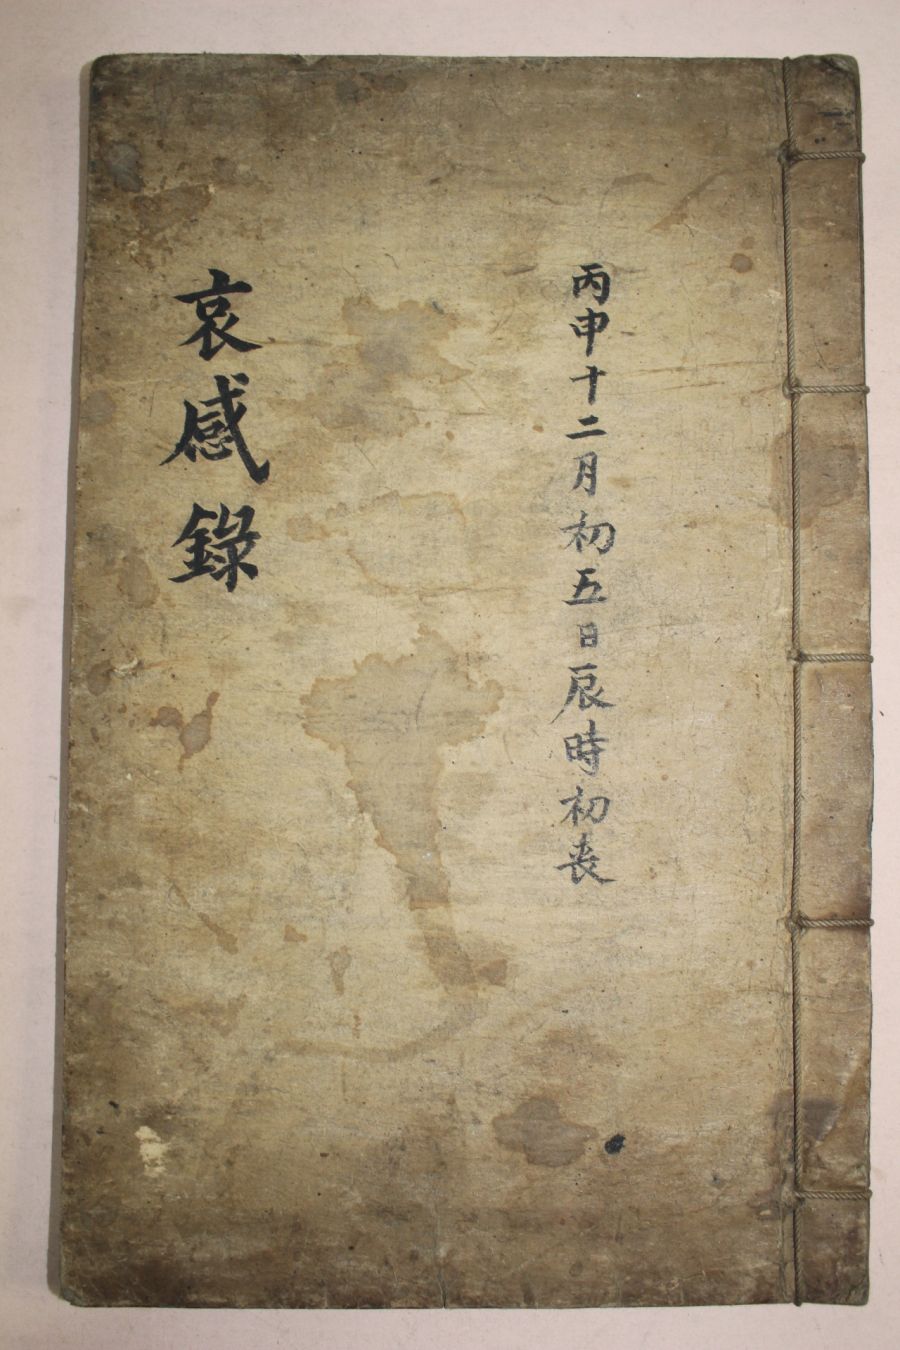 丙申十二月初五日辰時初喪
哀感錄